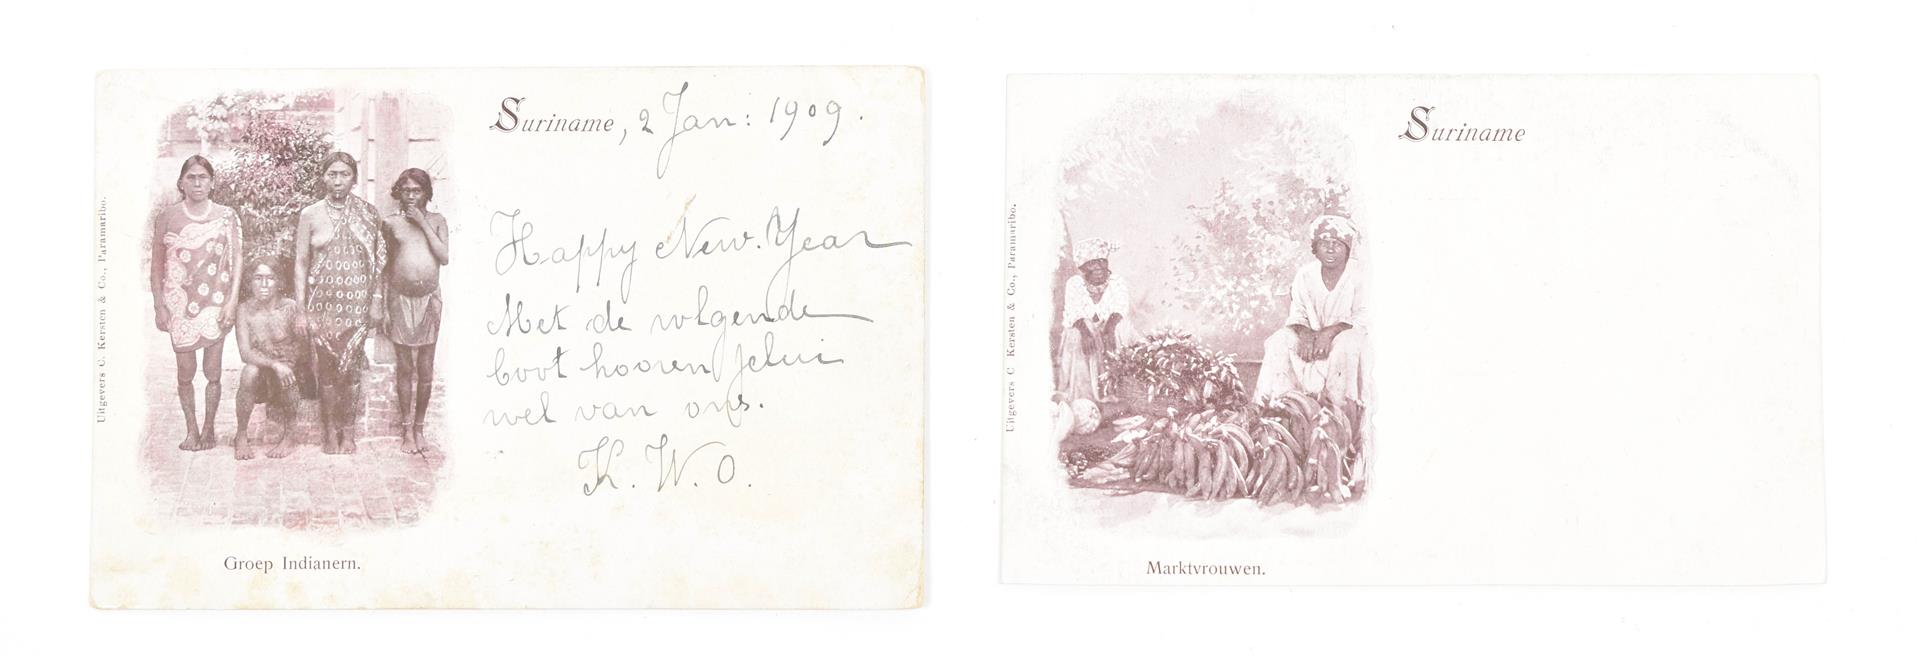 Uitgevers C. Kersten & Co., Paramaribo.
Suriname, 2 Jan: 1909.
Happy New. Year
Met de volgende
boot hooren jelui
wel van ons.
K. W. O.
Groep Indianern.
Uitgevers C Kersten & Co., Paramaribo.
Suriname
Marktvrouwen.